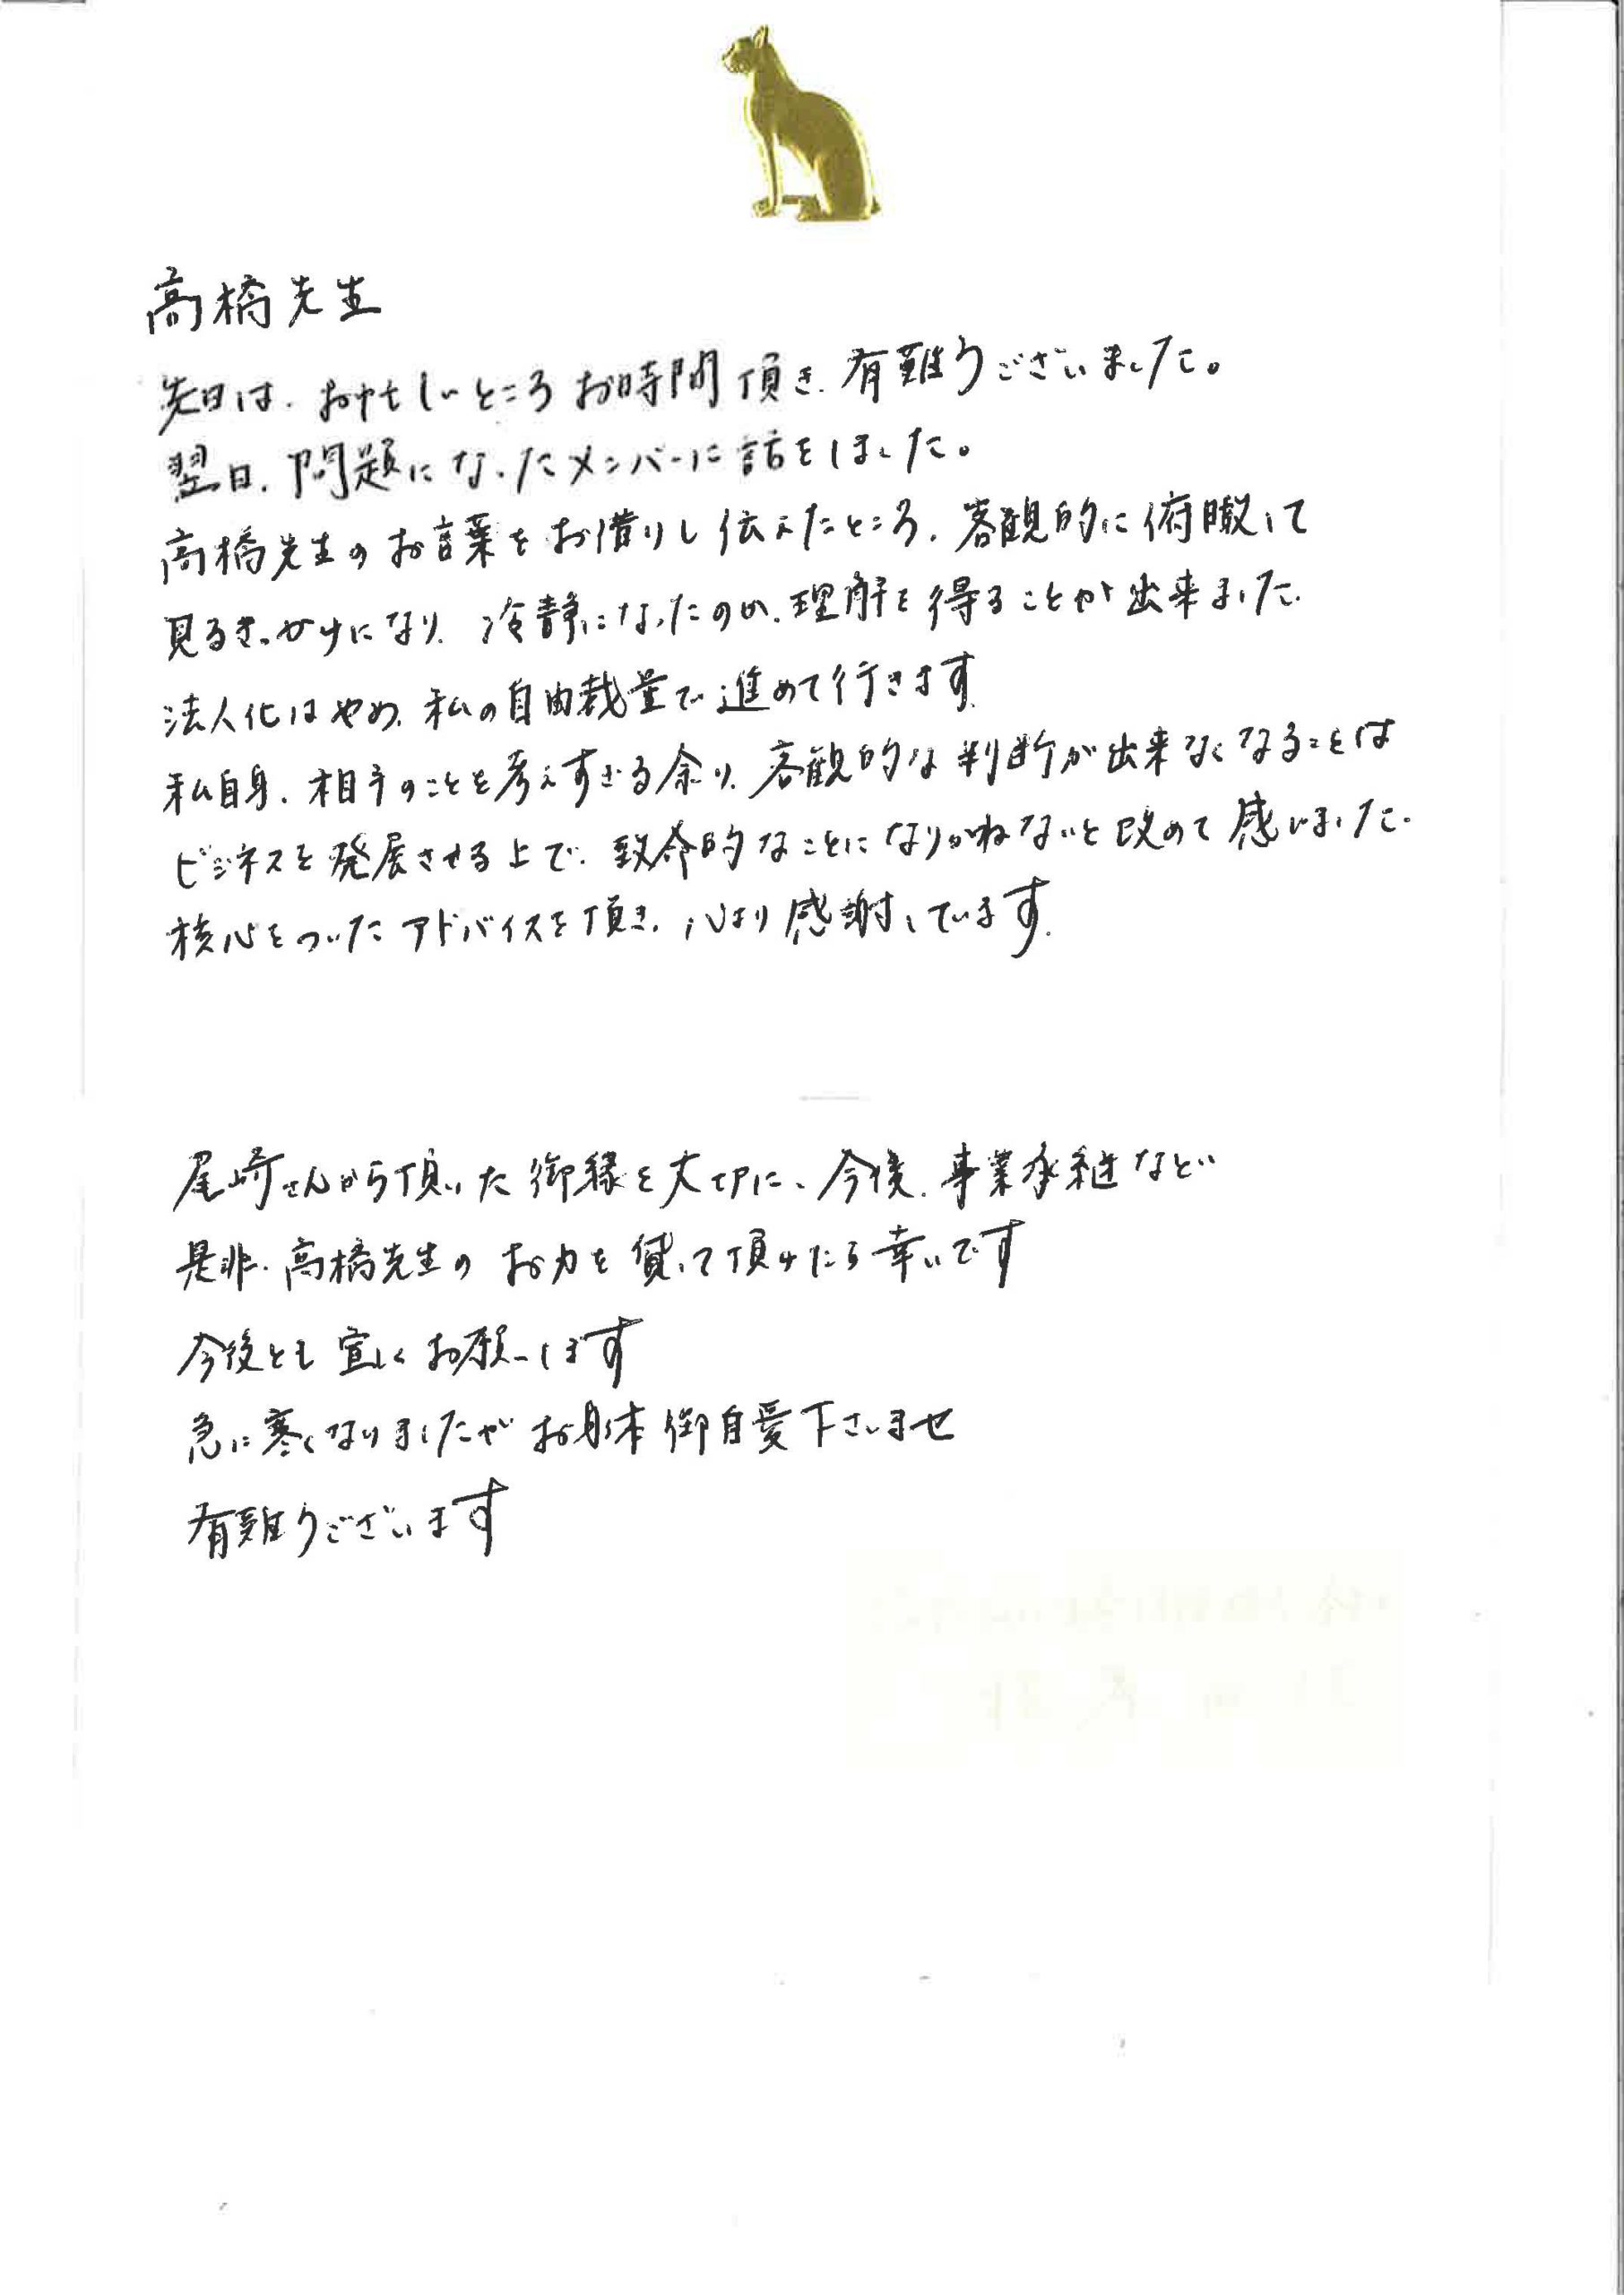 高橋先生
先日は、お忙しいところお時間頂き、有難うございました。
翌日、問題になったメンバーに話をしました。
高橋先生のお言葉をお借りし伝えたところ、客観的に俯瞰して
見るきっかけになり、冷静になったのか、理解を得ることが出来ました。
法人化はやめ、私の自由裁量で進めて行きます。
私自身、相手のことを考えすぎる余り、客観的な判断が出来なくなることは
ビジネスを発展させる上で、致命的なことになりかねないと改めて感じました。
核心をついたアドバイスを頂き、心より感謝しています。
尾崎さんから頂いた御縁を大切に、今後、事業承継など
是非、高橋先生のお力を貸して頂けたら幸いです
今後とも宜しくお願いします
急に寒くなりましたがお身体御自愛下さいませ
有難うございます